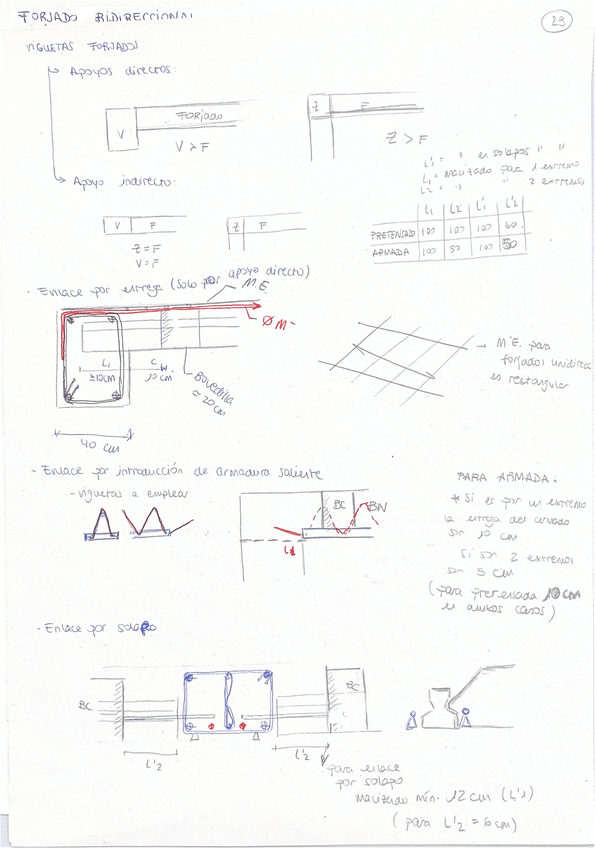 FORJADO BIDIRECCIONAL
23
VIGUETAS FORJADOS
Apoyos directos:
FORJADO
V
V > F
Z
F
Z > F
L'1 = " en solapos " "
L1 = Macizado para 1 extremo
L2 = " " 2 extremos
L1 L2 L'1 L'2
PRETENSADO 100 100 100 60
ARMADA 100 50 100 50
Apoyo indirecto:
V F
Z F
Z = F
V = F
- Enlace por entrega (solo por apoyo directo)
M.E.
Ø M-
L1
≥10cm
C
10 cm
Bovedilla
≈ 20 cm
40 cm
M.E. para
forjados unidirecc
es rectangular
- Enlace por introducción de armadura saliente
- viguetas a emplear
BC
BN
L1
PARA ARMADA:
* Si es por un extremo
la entrega del armado
son 10 cm
Si son 2 extremos
son 5 cm
(para pretensada 10 cm
en ambos casos)
- Enlace por solapo
BC
BC
L'2
L'2
para enlace
por solapo
macizado mín. 12 cm (L'1)
(para L'2 = 6 cm)